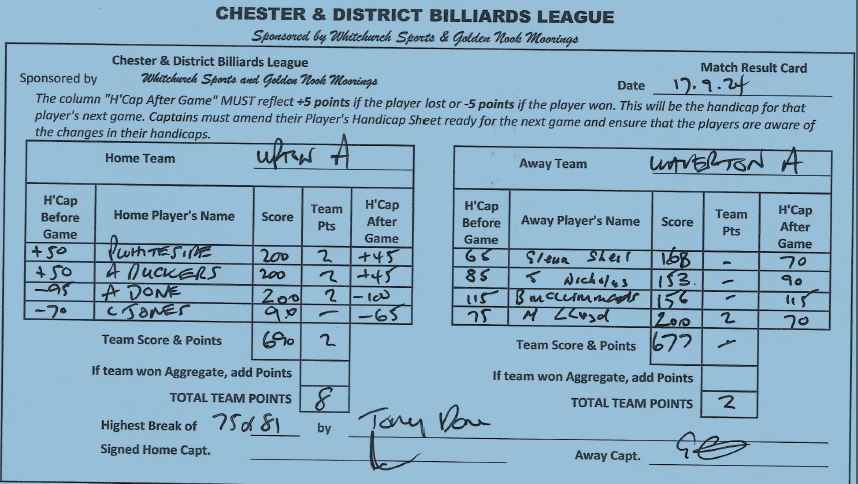 CHESTER & DISTRICT BILLIARDS LEAGUE
Sponsored by Whitchurch Sports & Golden Nook Moorings
Chester & District Billiards League
Match Result Card
Sponsored by Whitchurch Sports and Golden Nook Moorings
Date 17.9.24
The column "H'Cap After Game" MUST reflect +5 points if the player lost or -5 points if the player won. This will be the handicap for that
player's next game. Captains must amend their Player's Handicap Sheet ready for the next game and ensure that the players are aware of
the changes in their handicaps.
Home Team UPTON A
H'Cap Before Game Home Player's Name Score Team Pts H'Cap After Game
+50 P WHITESIDE 200 2 +45
+50 A DUCKERS 200 2 +45
-95 A DONE 200 2 -100
-70 C JONES 90 - -65
Team Score & Points 690 2
If team won Aggregate, add Points
TOTAL TEAM POINTS 8
Away Team WAVERTON A
H'Cap Before Game Away Player's Name Score Team Pts H'Cap After Game
65 Glenn Sheil 168 - 70
85 Nicholas 153 - 90
115 156 - 115
75 M Lloyd 200 2 70
Team Score & Points 677 -
If team won Aggregate, add Points
TOTAL TEAM POINTS 2
Highest Break of 75 of 81 by Tony Done
Signed Home Capt.
Away Capt.